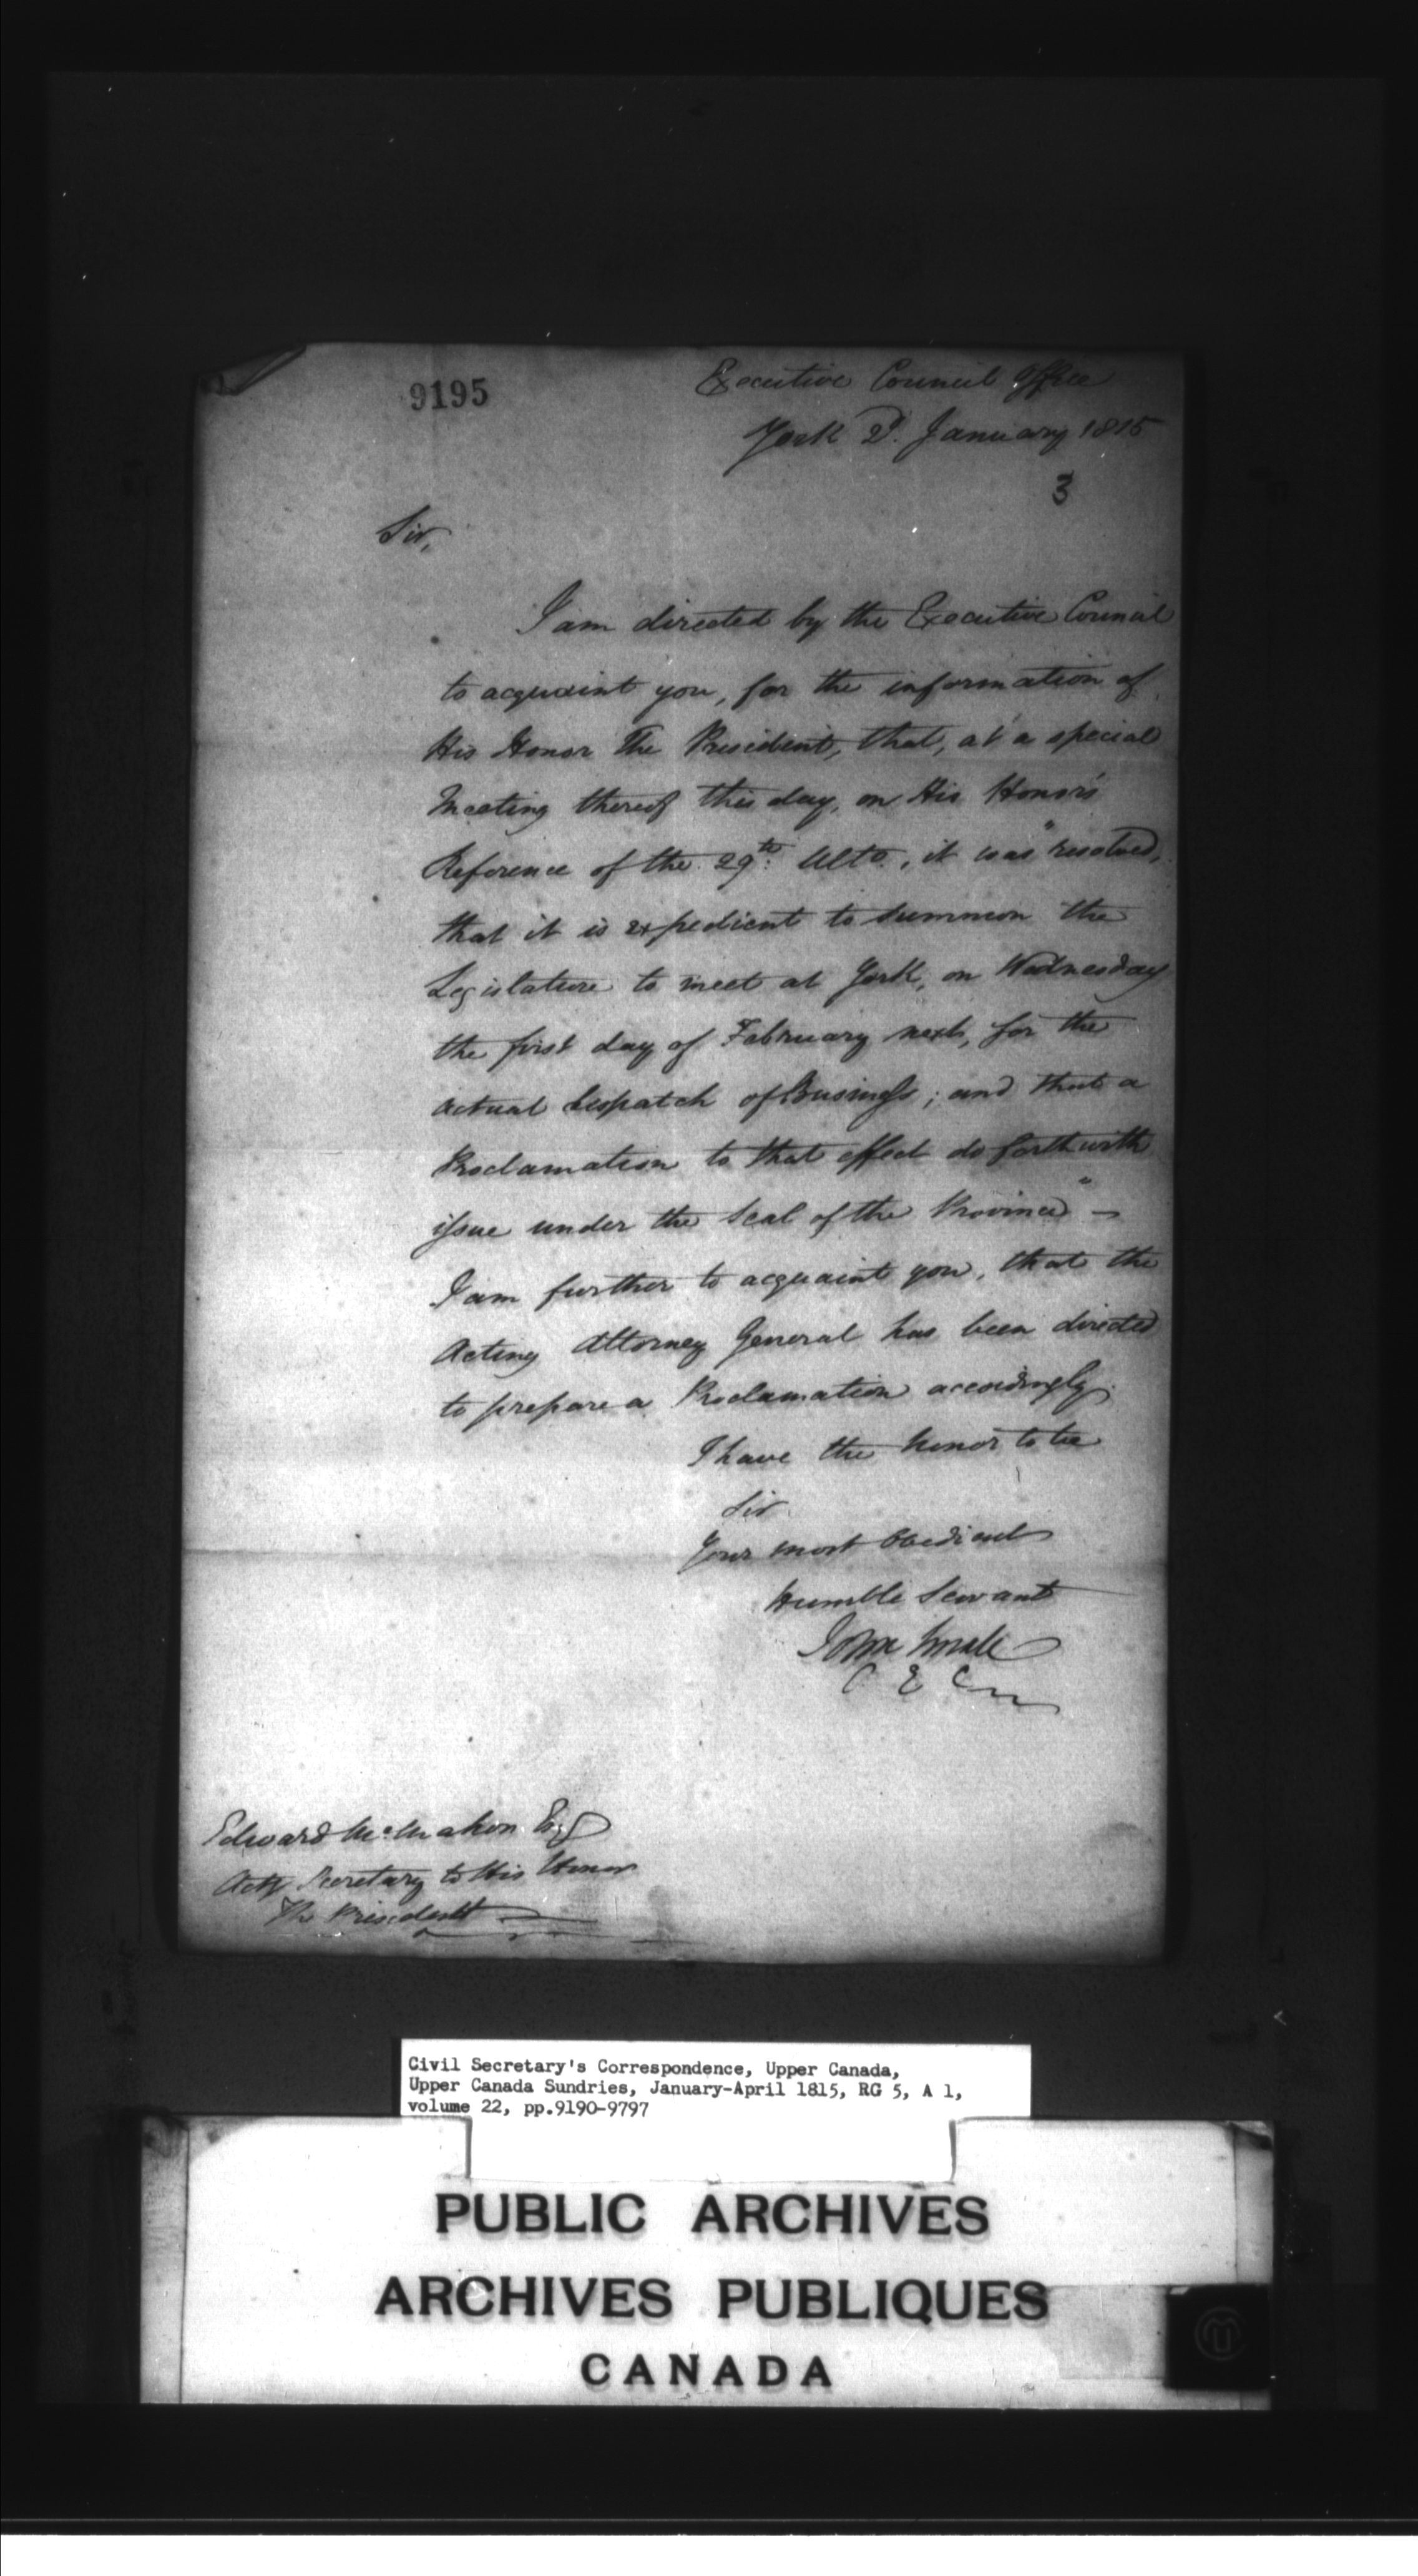 9195
Executive Council Office
York 2d. January 1815
3
Sir,
I am directed by the Executive Council
to acquaint you, for the information of
His Honor The President, that, at a special
Meeting thereof this day, on His Honor's
Reference of the 29th: Ulto., it was "resolved,
that it is expedient to summon the
Legislature to meet at York, on Wednesday
the first day of February next, for the
actual dispatch of Business; and that a
Proclamation to that effect do forthwith
issue under the Seal of the Province" —
I am further to acquaint you, that the
Acting Attorney General has been directed
to prepare a Proclamation accordingly.
I have the honor to be
Sir
Your most Obedient
Humble Servant
John Small
C E C
Edward McMahon Esqr
Actg Secretary to His Honor
The President
Civil Secretary's Correspondence, Upper Canada,
Upper Canada Sundries, January-April 1815, RG 5, A 1,
volume 22, pp.9190-9797
PUBLIC ARCHIVES
ARCHIVES PUBLIQUES
CANADA